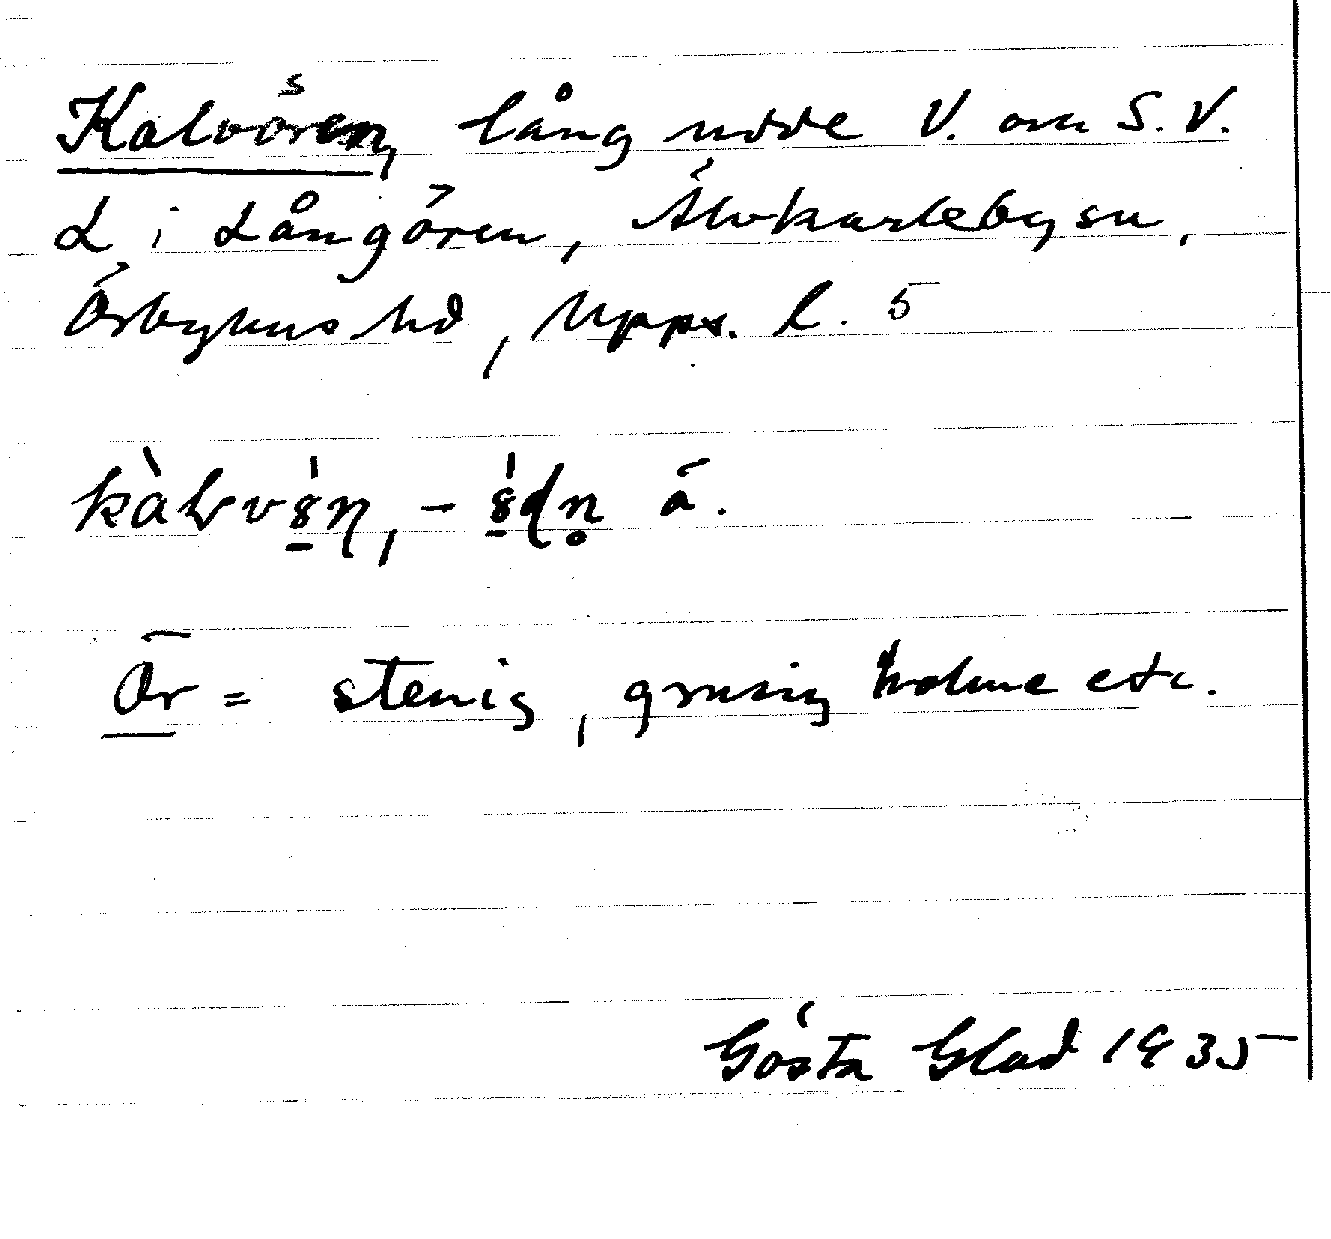 Kalvören, lång udde V. om S.V.
L i Långören, Älvkarleby sn,
Örbyhus hd, Upps. l. 5
Ör = stenig, grusig holme etc.
Gösta Glad 1935